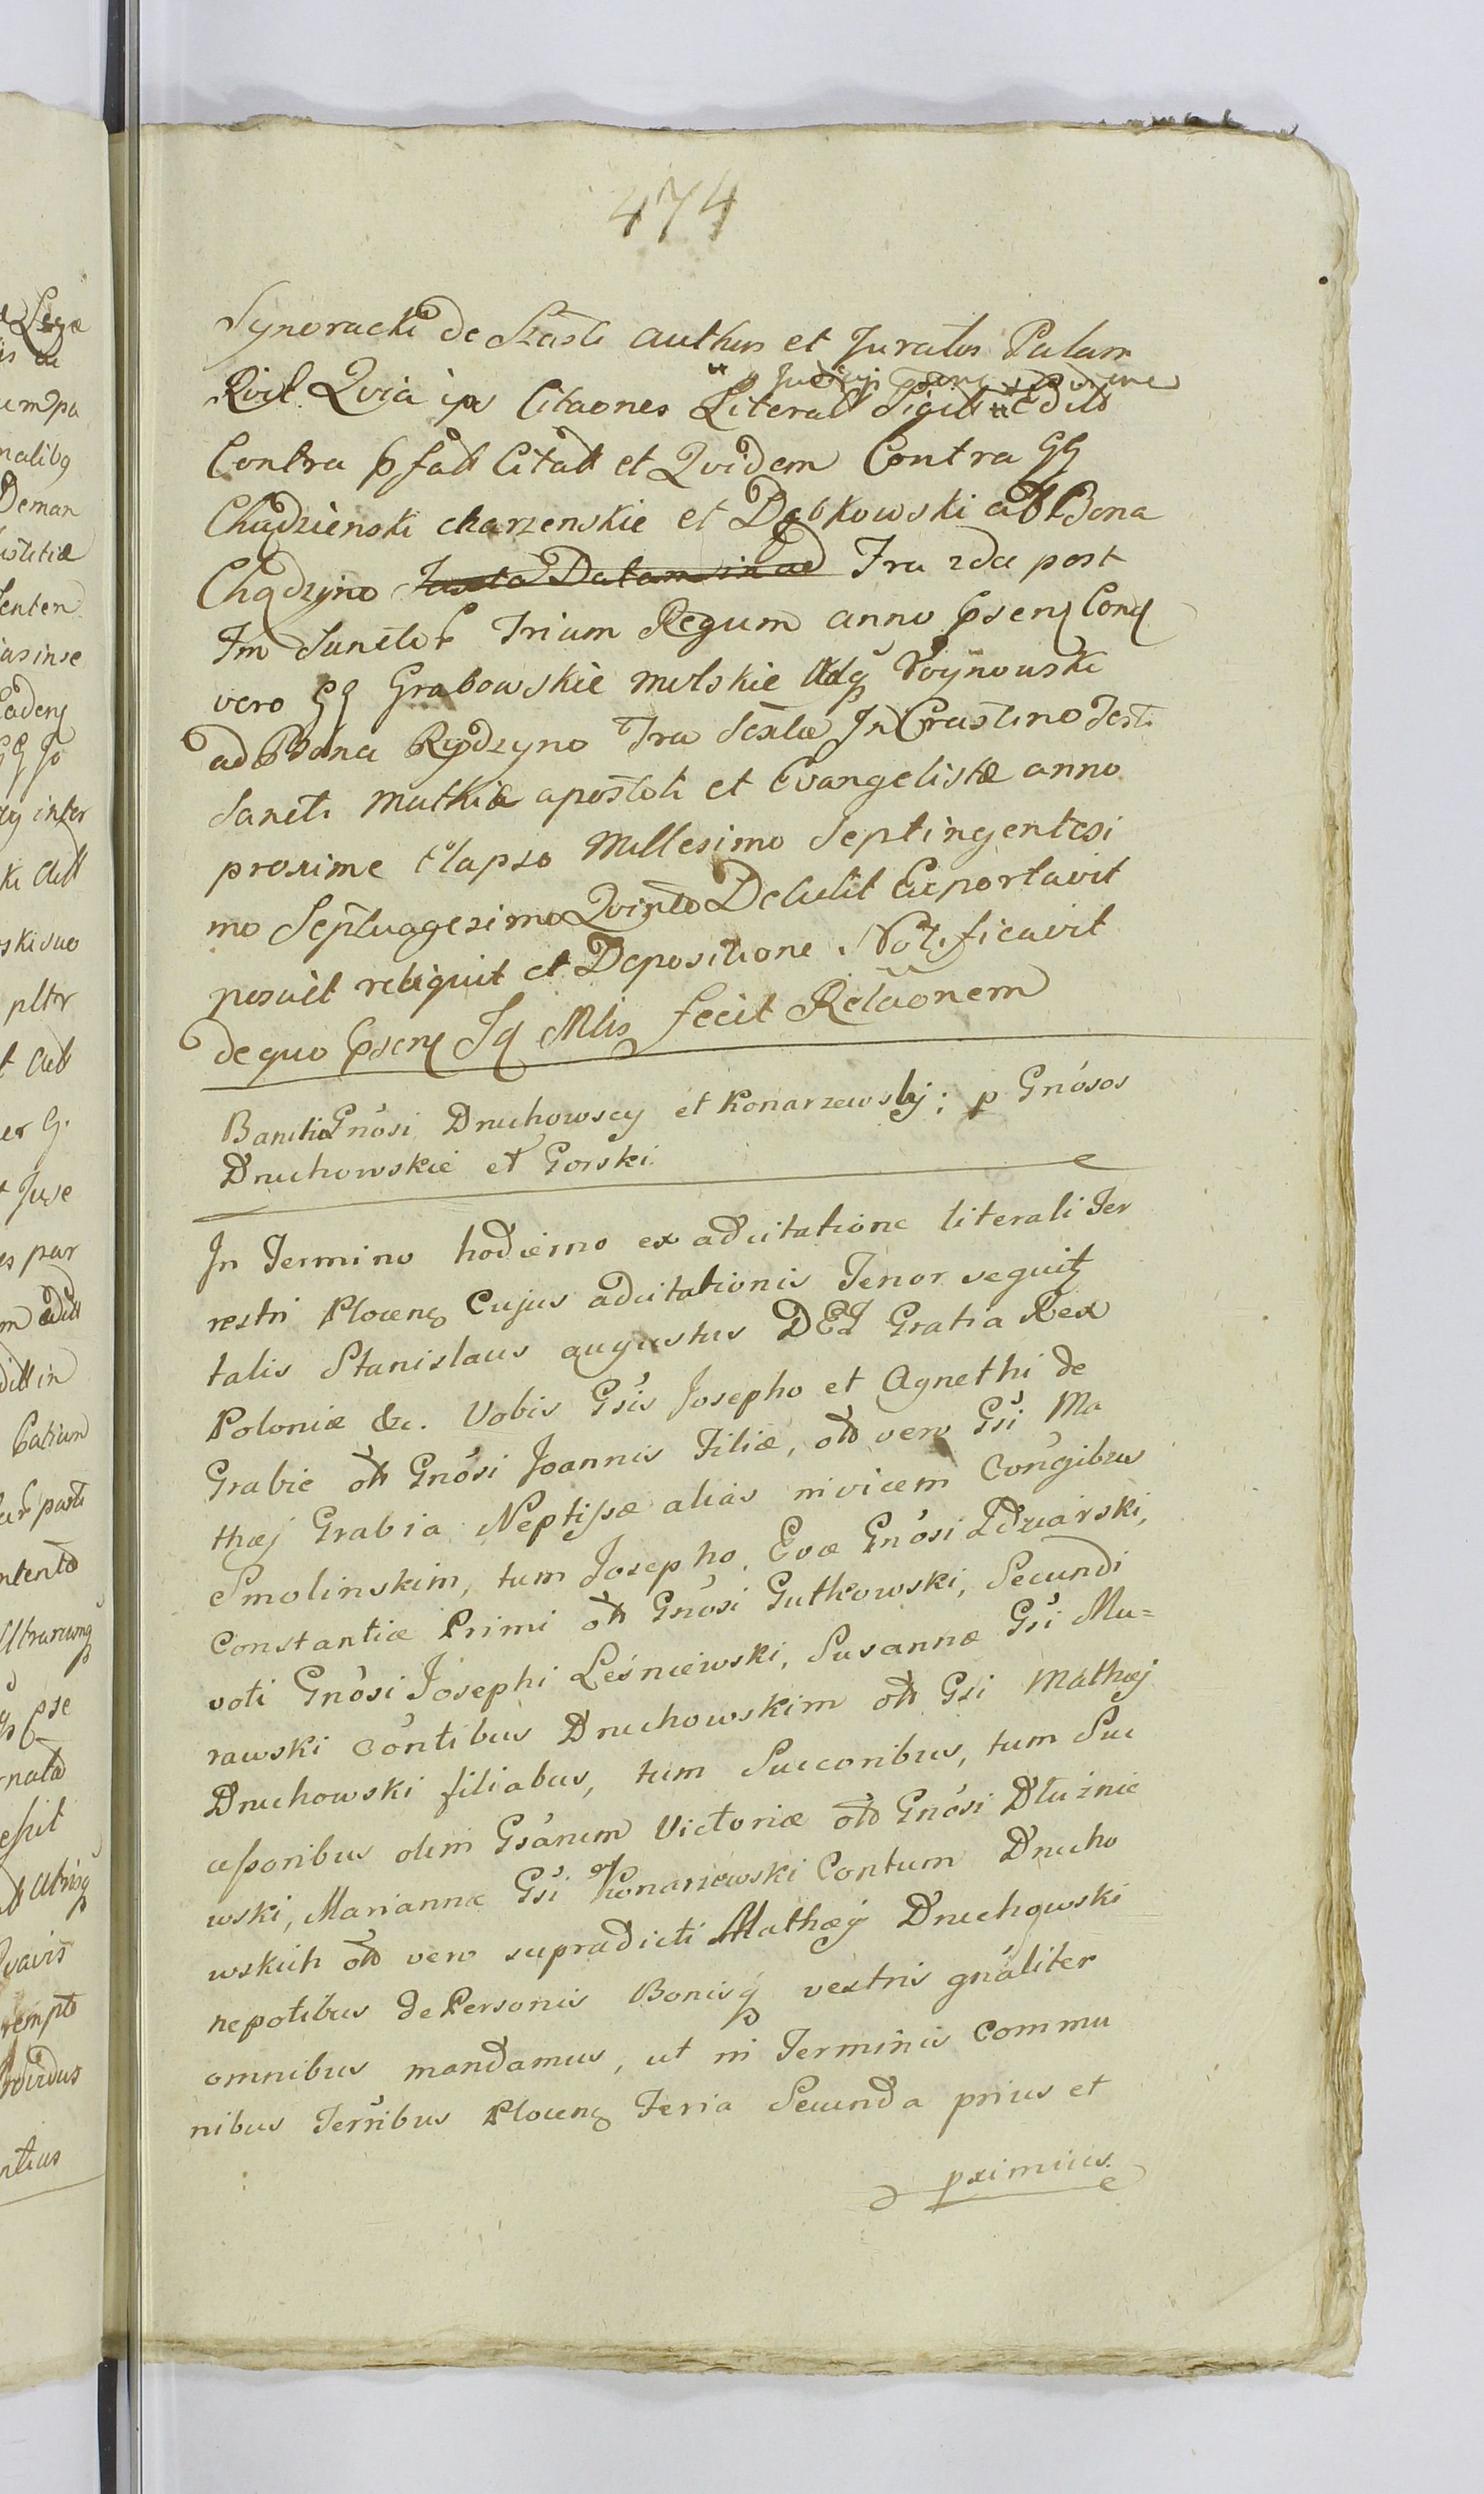 474
Synoracki de Szasti authus et Juratus Palam
Rvit Qvia ipse Citaones Literall Sigill Edill
" Judicij psenq
Contra psfatt Citatt et Qvidem Contra GG
Chądzienski charzenskie et Dębkowski ad Bona
Chądzyno Juxta Datam in ad Fra 2da post
Fm Sanctor Trium Regum anno psenq Conq
vero GG Grabowskie milskie Adq Woynowski
ad Bona Rydzyno Fra Sexta In Crastino Festi
Sancti Mathia apostoli et Evangelistæ anno
proxime Elapso Millesimo Septingentesi
mo Septuagesimo Qvinto Detulit Exportavit
posuit reliquit et Depositione Notificavit
de quo psenq Jq Mlis fecit Relaonem
Banitio Gnósi Druchowscy et Konarzewsky; p Gnósos
Druchowskie et Gorski.
In Termino hodierno ex adcitatione literali Ter
restri Plocenq Cujus adcitationis Tenor seqvitq
talis Stanislaus augustus DEI Gratia Rex
Poloniæ &c. Vobis Gsis Josepho et Agnethi de
Grabie oth Gnósi Joannis Filiæ, oth vero Gsi Ma
thæj Grabia Neptissæ alias invicem Congibus
Smolinskim, tum Josepho, Evæ Gnósi Zdziarski,
Constantiæ Primi oth Gnósi Gutkowski, Secundi
voti Gnósi Josephi Leśniewski, Susannæ Gsi Mu=
rawski Contibus Druchowskim oth Gsi Mathæj
Druchowski filiabus, tum Succoribus, tum Suc
cessoribus olim Gsarum Victoriæ oth Gnósi Dłużnie
wski, Mariannæ Gsi Konarzewski Contum Drucho
wskich oth vero supradicti Mathæj Druchowski
nepotibus de Personis Bonisq vestris gnaliter
omnibus mandamus, ut in Terminis Commu
nibus Terribus Plocenq Feria Secunda prius et
pximius.